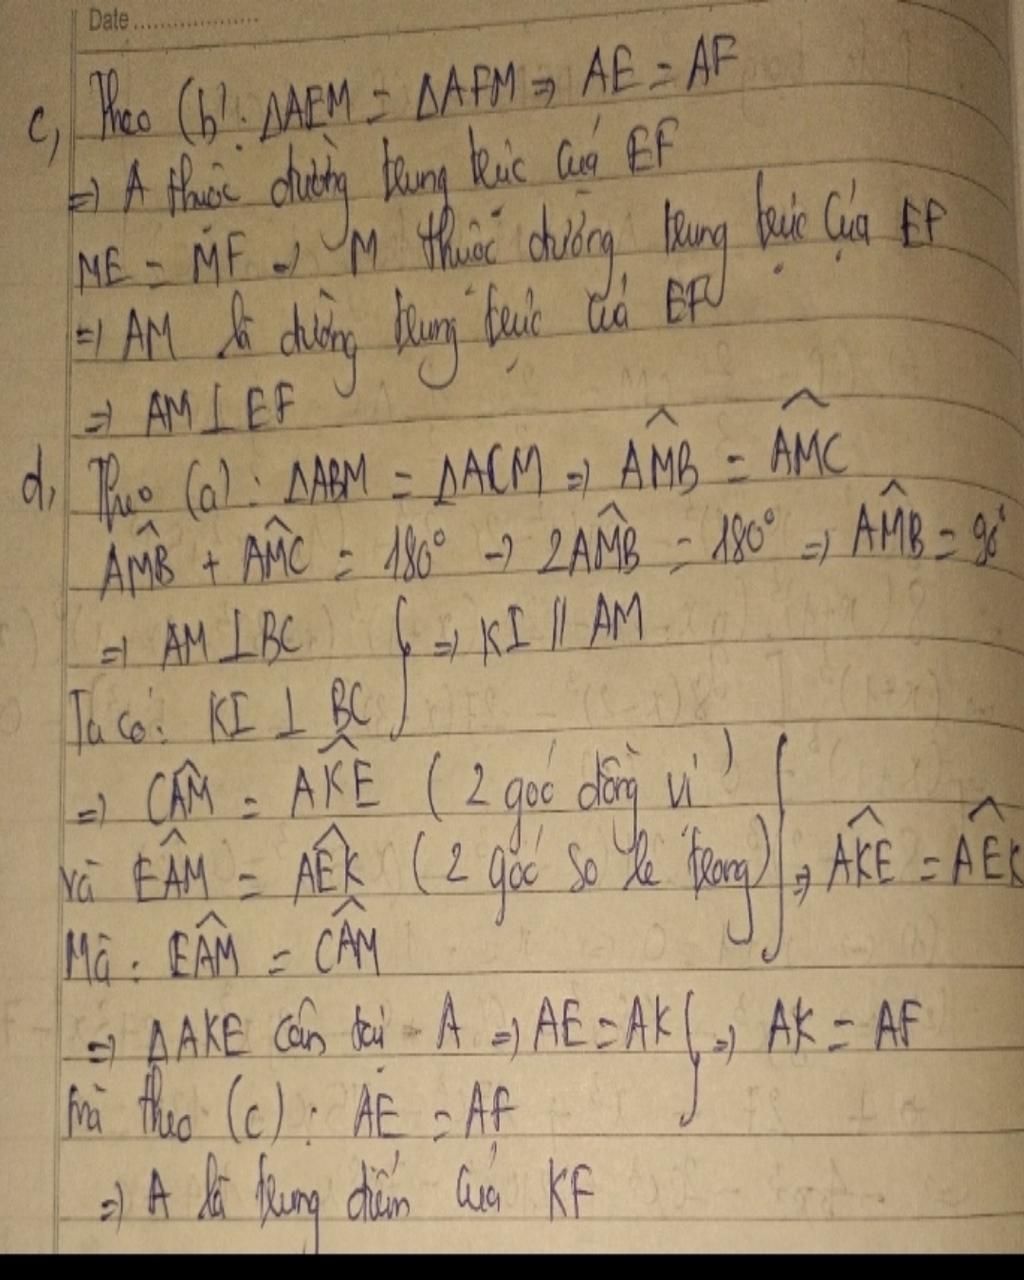 Date
c, Theo (b): ΔAEM = ΔAFM ⇒ AE = AF
⇒ A thuộc đường trung trực của EF
ME = MF ⇒ M thuộc đường trung trực của EF
⇒ AM là đường trung trực của EF
⇒ AM ⊥ EF
d, Theo (a): ΔABM = ΔACM ⇒ \widehat{AMB} = \widehat{AMC}
\widehat{AMB} + \widehat{AMC} = 180° → 2\widehat{AMB} = 180° ⇒ \widehat{AMB} = 90°
⇒ AM ⊥ BC } ⇒ KI // AM
Ta có: KI ⊥ BC
⇒ \widehat{CAM} = \widehat{AKE} (2 góc đồng vị)
và \widehat{EAM} = \widehat{AEK} (2 góc so le trong) } ⇒ \widehat{AKE} = \widehat{AEK}
Mà: \widehat{EAM} = \widehat{CAM}
⇒ ΔAKE cân tại A ⇒ AE = AK } ⇒ AK = AF
mà theo (c): AE = AF
⇒ A là trung điểm của KF